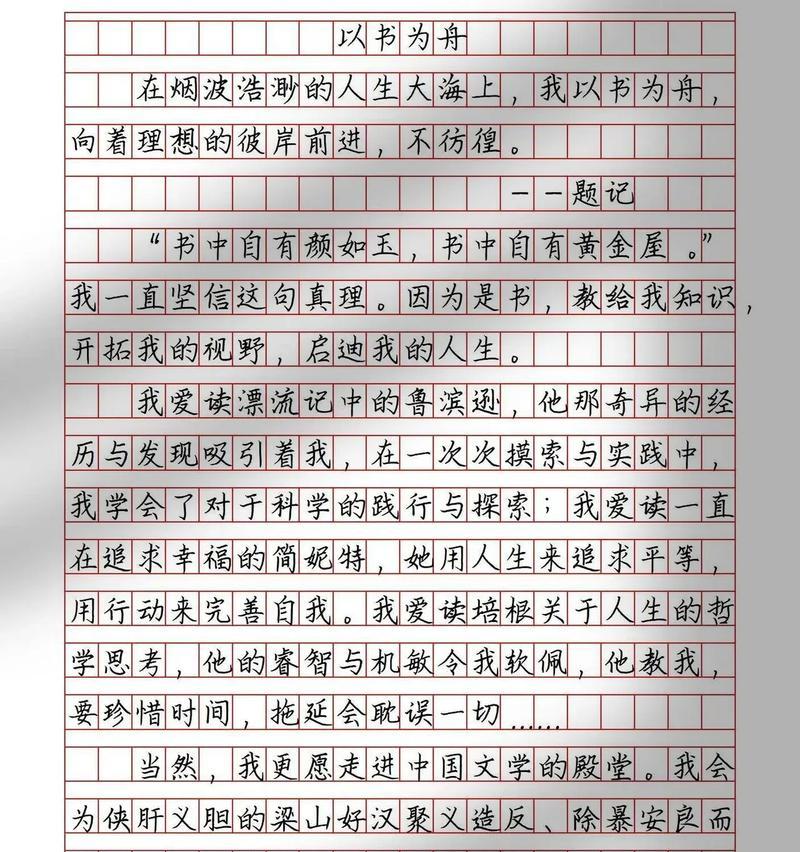 以书为舟
在烟波浩渺的人生大海上，我以书为舟，
向着理想的彼岸前进，不彷徨。
——题记
“书中自有颜如玉，书中自有黄金屋。”
我一直坚信这句真理。因为是书，教给我知识，
开拓我的视野，启迪我的人生。
我爱读漂流记中的鲁滨逊，他那奇异的经
历与发现吸引着我，在一次次摸索与实践中，
我学会了对于科学的践行与探索；我爱读一直
在追求幸福的简妮特，她用人生来追求平等，
用行动来完善自我。我爱读培根关于人生的哲
学思考，他的睿智与机敏令我软佩，他教我，
要珍惜时间，拖延会耽误一切……
当然，我更愿走进中国文学的殿堂。我会
为侠肝义胆的梁山好汉聚义造反、除暴安良而